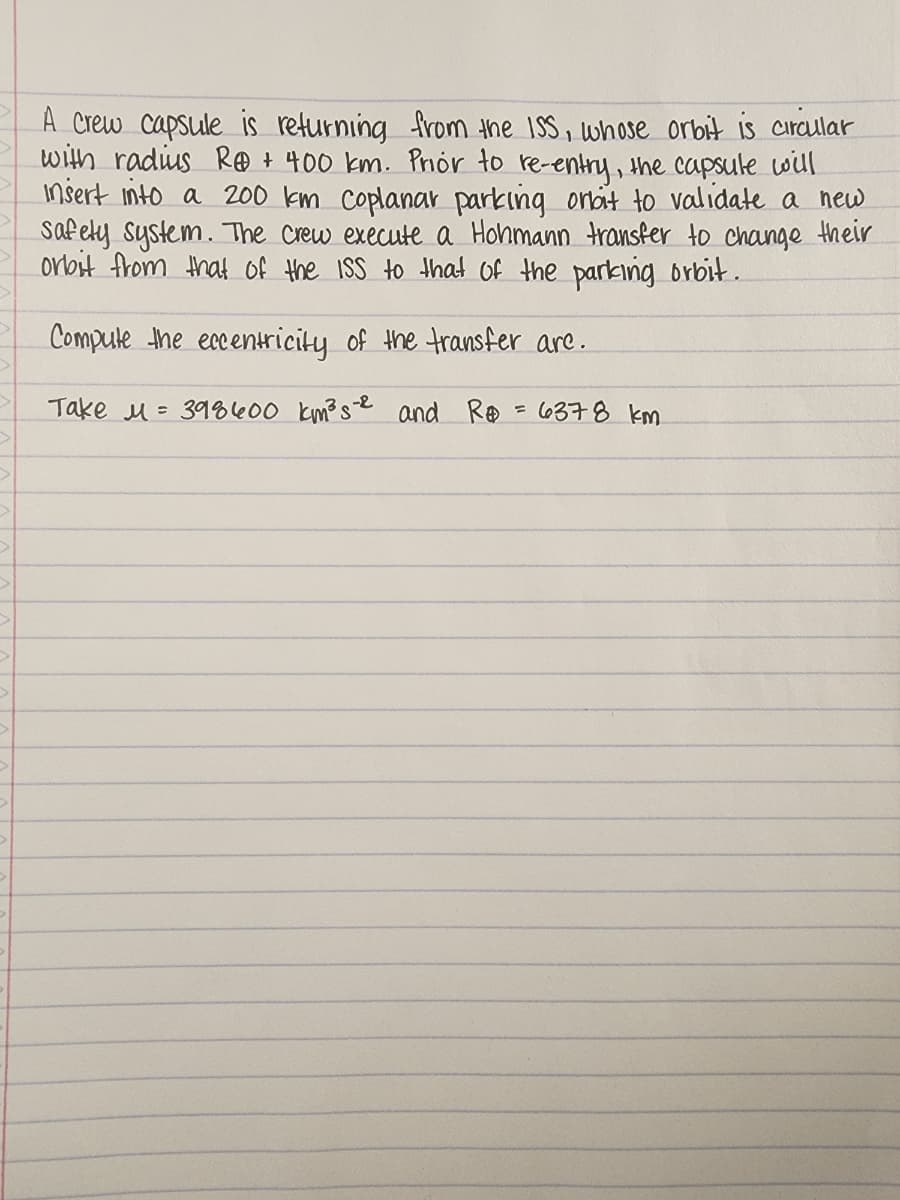 A crew capsule is returning from the ISS, whose orbit is circular
with radius R⊕ + 400 km. Prior to re-entry, the capsule will
insert into a 200 km coplanar parking orbit to validate a new
safety system. The crew execute a Hohmann transfer to change their
orbit from that of the ISS to that of the parking orbit.
Compute the eccentricity of the transfer arc.
Take μ = 398600 km³ s⁻² and R⊕ = 6378 km